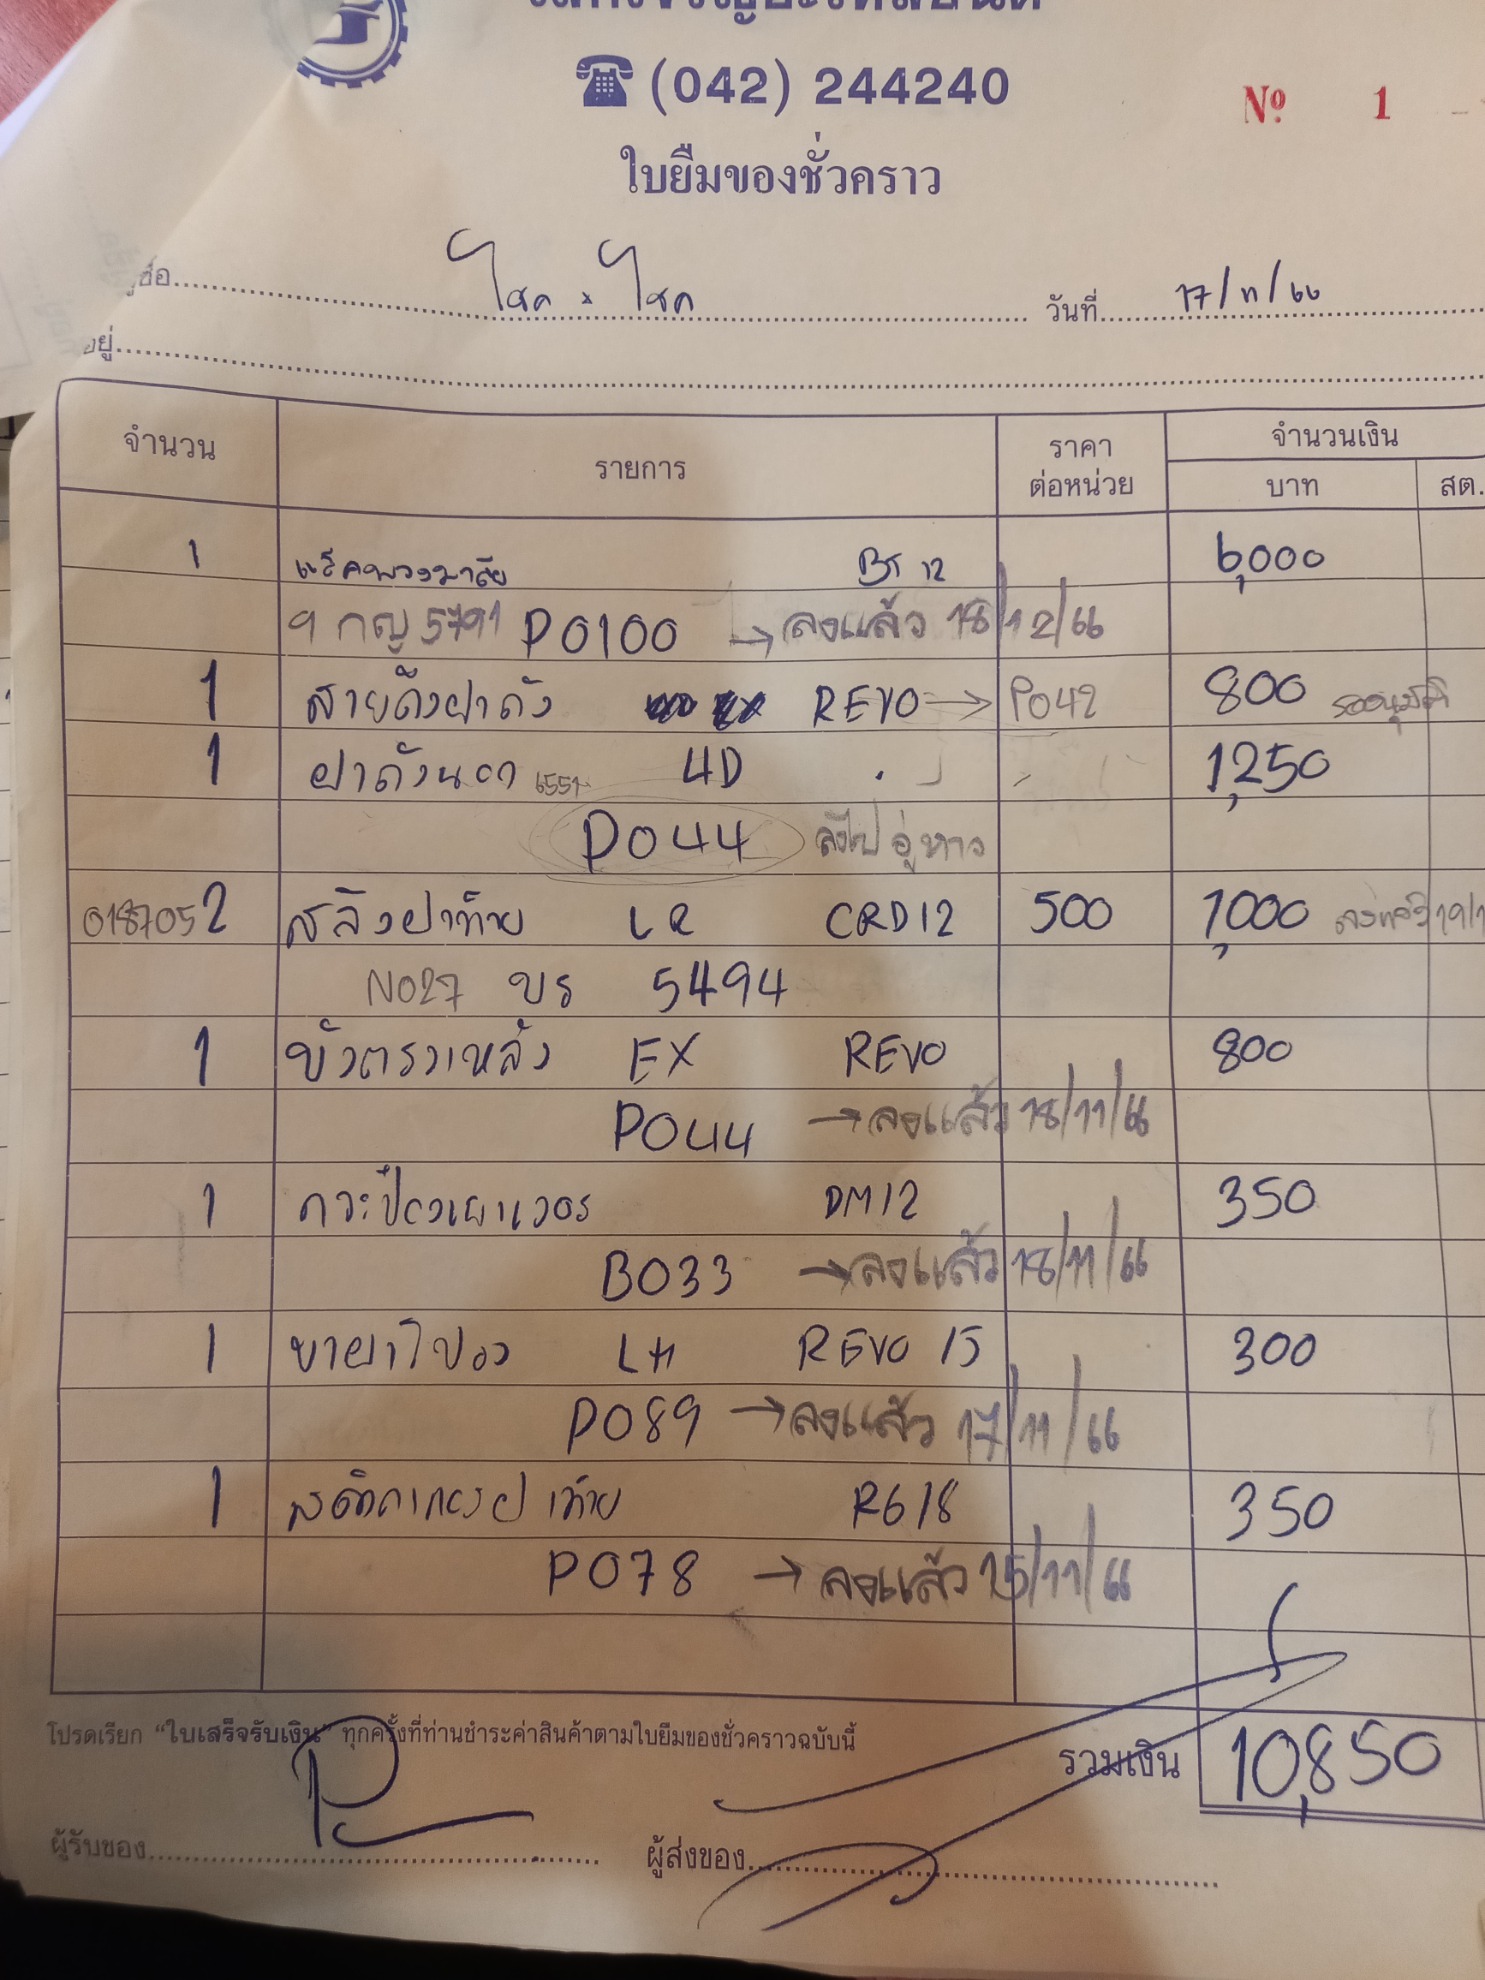 (042) 244240
Nº 1
ใบยืมของชั่วคราว
ชื่อ โชค × โชค วันที่ 17/11/66
อยู่
จำนวน รายการ ราคาต่อหน่วย จำนวนเงิน
บาท สต.
1 แร็คพวงมาลัย BT 12 6,000
กญ 5791 P0100 → ลงแล้ว 18/12/66
1 สายดึงฝาถัง REVO → P042 800
1 ฝาถังนอก 4D 1,250
P044 อู่หาว
018705 2 สลิงฝาท้าย LR CRD12 500 1,000 ลงแล้ว 19/1
N027 บร 5494
1 บังตรงหลัง EX REVO 800
P044 → ลงแล้ว 18/11/66
1 DM12 350
B033 → ลงแล้ว 18/11/66
1 ขายาไฟ LH REVO 15 300
P089 → ลงแล้ว 17/11/66
1 ฝาท้าย RG18 350
P078 → ลงแล้ว 15/11/66
โปรดเรียก “ใบเสร็จรับเงิน” ทุกครั้งที่ท่านชำระค่าสินค้าตามใบยืมของชั่วคราวฉบับนี้
รวมเงิน 10,850
ผู้รับของ ผู้ส่งของ